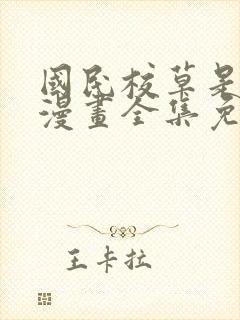 國民校草是
漫畫全集免
王卡拉